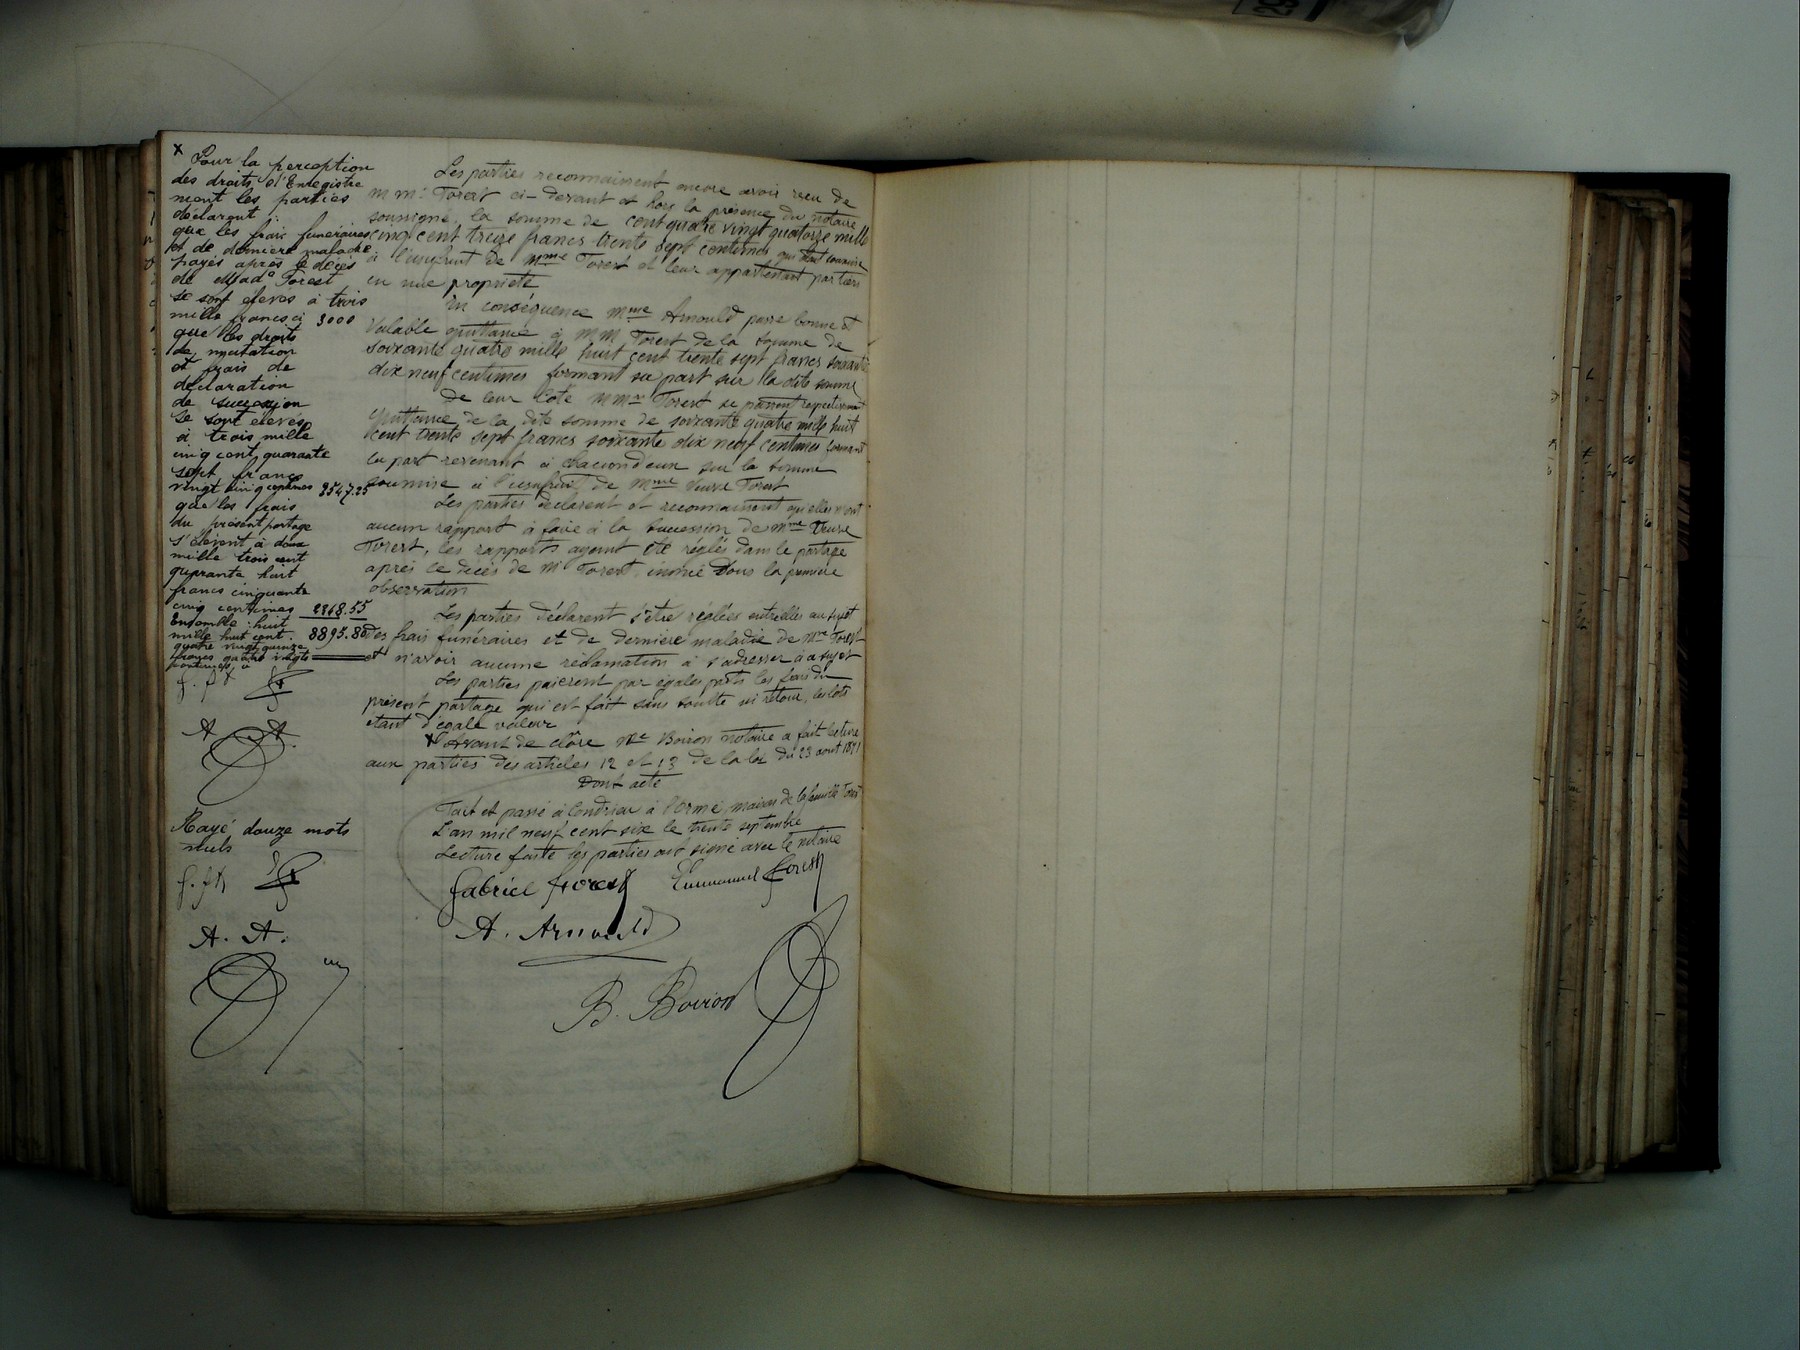 x Pour la perception
des droits d'Enregistre
ment les parties
declarent :
que les frais funeraires
et de dernière maladie
payés après le decès
de Made Forest
se sont élevés à trois
mille francs ci 3000
que les droits
de mutation
et frais de
déclaration
de succession
se sont élevés
à trois mille
cinq cent quarante
sept francs
vingt cinq centimes 3547.25
que les frais
du présent partage
s'élèvent à deux
mille trois cent
quarante huit
francs cinquante
cinq centimes 2348.55
Ensemble : huit
mille huit cent 8895.80
quatre vingt quinze
francs quatre vingts
centimes
A. A.
Rayé douze mots
nuls
A. A.
Les parties reconnaissent encore avoir reçu de
MM. Forest ci-devant et hors la présence du notaire
soussigné, la somme de cent quatre vingt quatorze mille
cinq cent treize francs trente sept centimes qui était soumise
à l'usufruit de Mme Forest et leur appartenant par tiers
en nue propriété
En conséquence Mme Arnould passe bonne et
valable quittance à MM Forest de la somme de
soixante quatre mille huit cent trente sept francs soixante
dix neuf centimes formant sa part sur la dite somme
De leur côté MMrs Forest se passent respectivement
quittance de la dite somme de soixante quatre mille huit
cent trente sept francs soixante dix neuf centimes formant
la part revenant à chacun d'eux sur la somme
soumise à l'usufruit de Mme Veuve Forest
Les parties déclarent et reconnaissent qu'elles n'ont
aucun rapport à faire à la succession de Mme Veuve
Forest, les rapports ayant été réglés dans le partage
après le decès de Mr Forest, énoncé sous la première
observation
Les parties déclarent s'être réglées entr'elles au sujet
des frais funéraires et de dernière maladie de Mme Forest
et n'avoir aucune réclamation à s'adresser à ce sujet
Les parties paieront par égales parts les frais du
présent partage qui est fait sans soulte ni retour, les lots
étant d'égale valeur
x Avant de clôre Me Boiron notaire a fait lecture
aux parties des articles 12 et 13 de la loi du 23 aout 1871
Dont acte
Fait et passé à Condrieu à l'Orme maison de la famille Forest
L'an mil neuf cent six le trente septembre
Lecture faite les parties ont signé avec le notaire
Gabriel Forest Emmanuel Forest
A. Arnould
B. Boiron